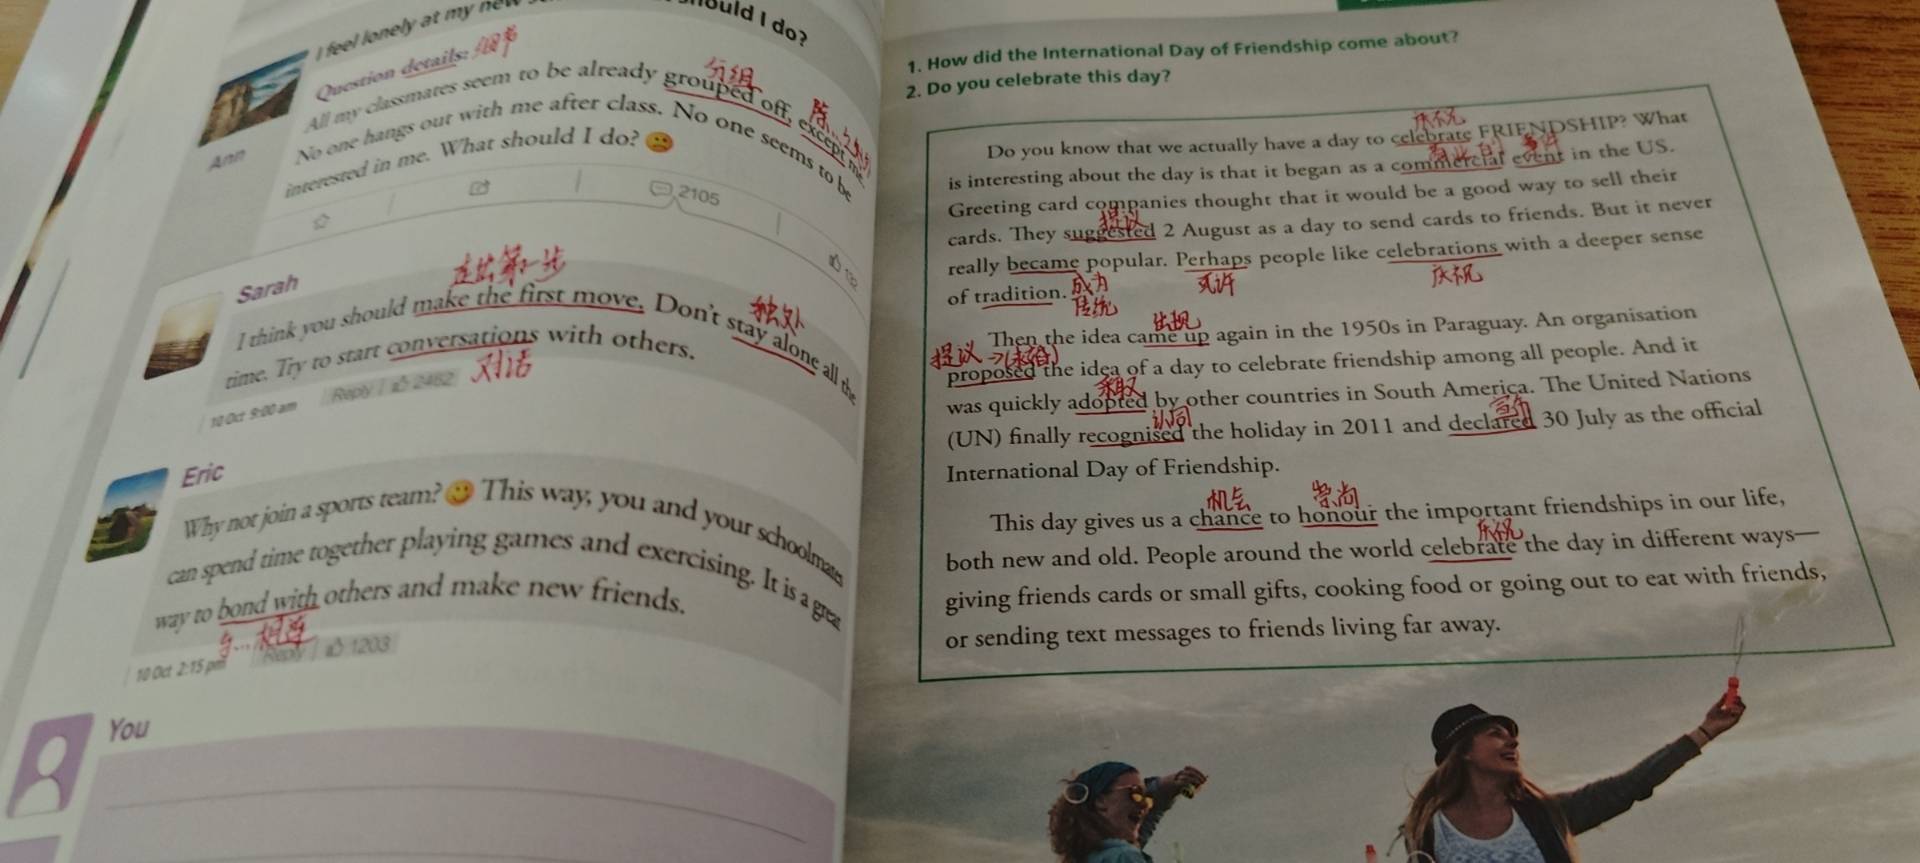 I feel lonely at my new
hould I do?
Question details: 细节
分组
除...之外
All my classmates seem to be already grouped off, except me.
No one hangs out with me after class. No one seems to be
interested in me. What should I do?
Ann
2105
132
Sarah
走出第一步
I think you should make the first move. Don't stay alone all the
独处
time. Try to start conversations with others.
对话
10 Oct 9:00 am Reply 2462
Eric
Why not join a sports team? This way, you and your schoolmates
can spend time together playing games and exercising. It is a great
way to bond with others and make new friends.
与...相连
10 Oct 2:15 pm Reply 1203
You
1. How did the International Day of Friendship come about?
2. Do you celebrate this day?
庆祝
Do you know that we actually have a day to celebrate FRIENDSHIP? What
商业的 事件
is interesting about the day is that it began as a commercial event in the US.
Greeting card companies thought that it would be a good way to sell their
提议
cards. They suggested 2 August as a day to send cards to friends. But it never
really became popular. Perhaps people like celebrations with a deeper sense
成为 或许 庆祝
of tradition.
传统
出现
Then the idea came up again in the 1950s in Paraguay. An organisation
提议→(求婚)
proposed the idea of a day to celebrate friendship among all people. And it
采取
was quickly adopted by other countries in South America. The United Nations
认同 宣布
(UN) finally recognised the holiday in 2011 and declared 30 July as the official
International Day of Friendship.
机会 崇尚
This day gives us a chance to honour the important friendships in our life,
庆祝
both new and old. People around the world celebrate the day in different ways—
giving friends cards or small gifts, cooking food or going out to eat with friends,
or sending text messages to friends living far away.